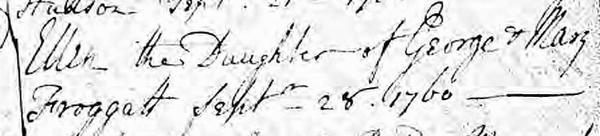 Hudson Sept.
Ellen the Daughter of George & Mary
Froggatt Septr 28. 1760